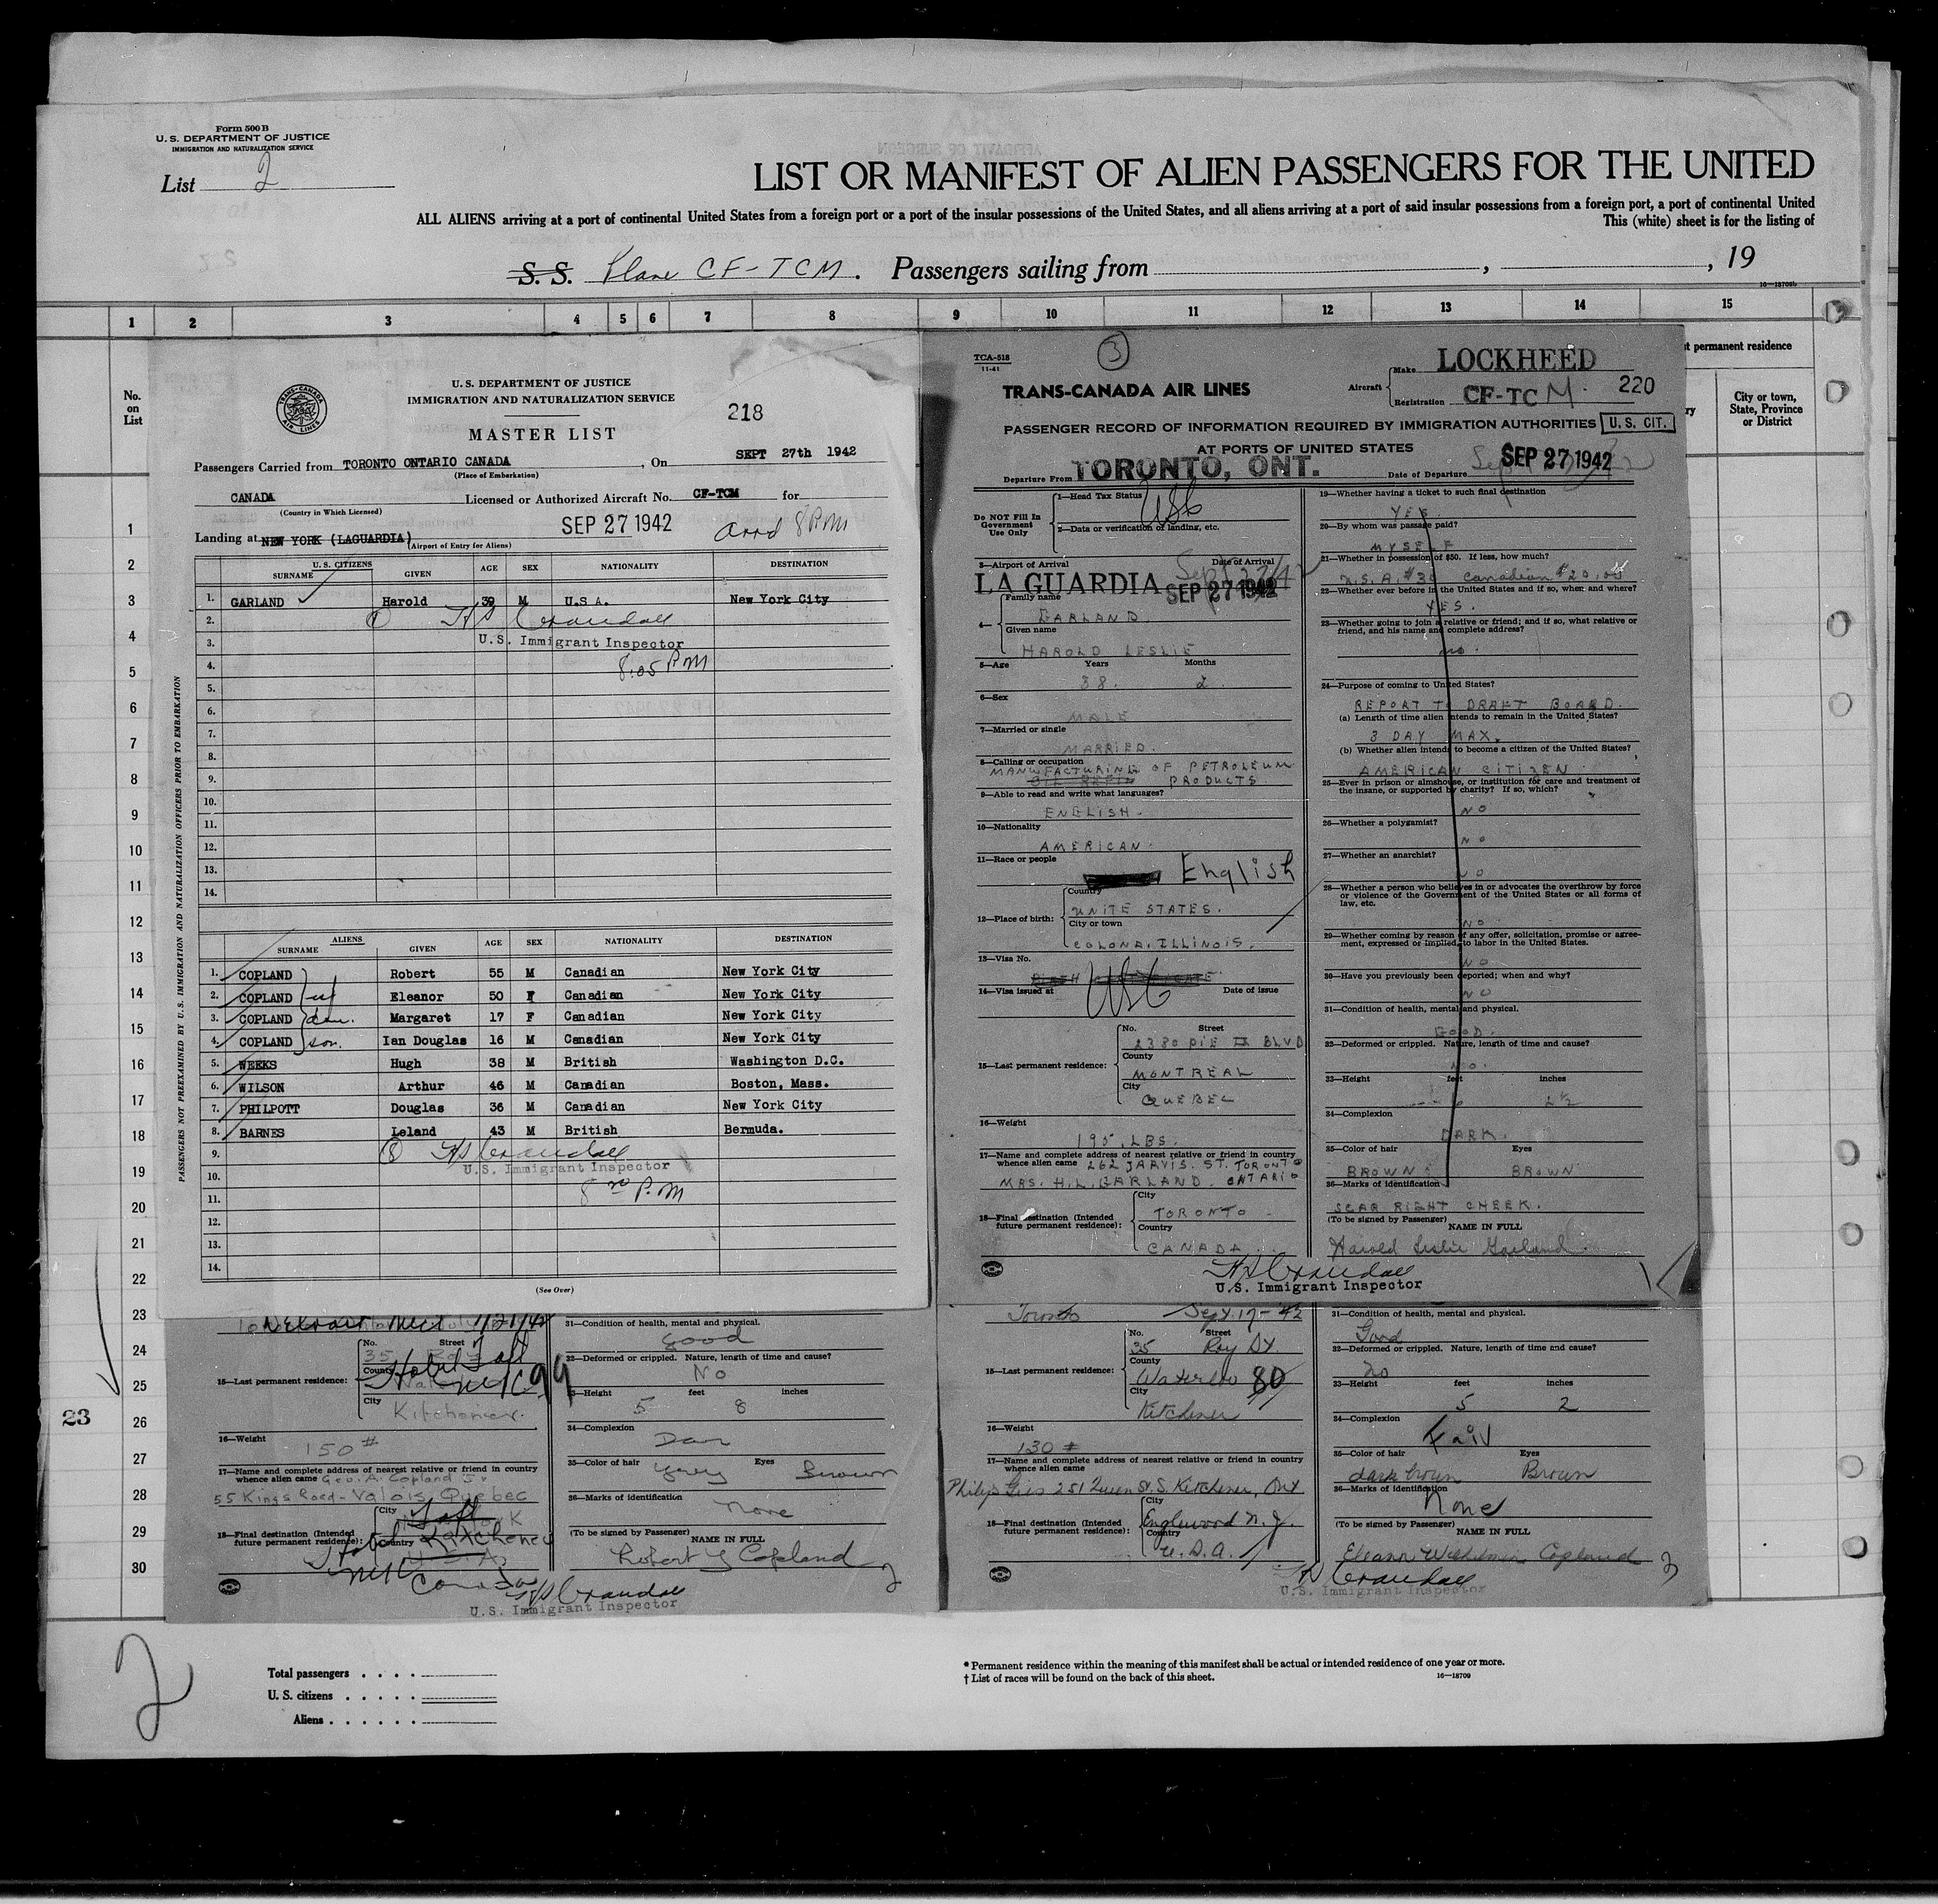 Form 500 B
U. S. DEPARTMENT OF JUSTICE
IMMIGRATION AND NATURALIZATION SERVICE
List 2
LIST OR MANIFEST OF ALIEN PASSENGERS FOR THE UNITED
ALL ALIENS arriving at a port of continental United States from a foreign port or a port of the insular possessions of the United States, and all aliens arriving at a port of said insular possessions from a foreign port, a port of continental United
This (white) sheet is for the listing of
S. S. Plane CF-TCM. Passengers sailing from , , 19
16—18709b
1 2 3 4 5 6 7 8 9 10 11 12 13 14 15
No. on List
t permanent residence
City or town, State, Province or District
1
2
3
4
5
6
7
8
9
10
11
12
13
14
15
16
17
18
19
20
21
22
23
24
25
26
27
28
29
30
23
TRANS-CANADA AIR LINES
U. S. DEPARTMENT OF JUSTICE
IMMIGRATION AND NATURALIZATION SERVICE
218
MASTER LIST
Passengers Carried from TORONTO ONTARIO CANADA, On SEPT 27th 1942
(Place of Embarkation)
CANADA Licensed or Authorized Aircraft No. CF-TCM for
(Country in Which Licensed)
SEP 27 1942 arrd 8 PM
Landing at NEW YORK (LAGUARDIA)
(Airport of Entry for Aliens)
U. S. CITIZENS
SURNAME GIVEN AGE SEX NATIONALITY DESTINATION
1. GARLAND Harold 39 M U.S.A. New York City
2. 1 HS Crandall
3. U.S. Immigrant Inspector
4. 8.05 PM
5.
6.
7.
8.
9.
10.
11.
12.
13.
14.
ALIENS
SURNAME GIVEN AGE SEX NATIONALITY DESTINATION
1. COPLAND Robert 55 M Canadian New York City
2. COPLAND wf Eleanor 50 F Canadian New York City
3. COPLAND dau. Margaret 17 F Canadian New York City
4. COPLAND son. Ian Douglas 16 M Canadian New York City
5. WEEKS Hugh 38 M British Washington D.C.
6. WILSON Arthur 46 M Canadian Boston, Mass.
7. PHILPOTT Douglas 36 M Canadian New York City
8. BARNES Leland 43 M British Bermuda.
9. 8 HS Crandall
10. U.S. Immigrant Inspector
11. P.M
12.
13.
14.
(See Over)
PASSENGERS NOT PREEXAMINED BY U. S. IMMIGRATION AND NATURALIZATION OFFICERS PRIOR TO EMBARKATION
TCA-518
11-41
3
TRANS-CANADA AIR LINES
Aircraft
Make LOCKHEED
Registration CF-TCM. 220
PASSENGER RECORD OF INFORMATION REQUIRED BY IMMIGRATION AUTHORITIES U. S. CIT.
AT PORTS OF UNITED STATES
Departure From TORONTO, ONT. Date of Departure SEP 27 1942
Do NOT Fill In Government Use Only
1—Head Tax Status USC
2—Data or verification of landing, etc.
3—Airport of Arrival Date of Arrival
LA GUARDIA SEP 27 1942
4— Family name
GARLAND
Given name
HAROLD LESLIE
5—Age Years Months
38. 2
6—Sex
MALE
7—Married or single
MARRIED.
8—Calling or occupation
MANUFACTURING OF PETROLEUM
PRODUCTS
9—Able to read and write what languages?
ENGLISH.
10—Nationality
AMERICAN.
11—Race or people
English
12—Place of birth:
Country
UNITE STATES.
City or town
COLONA, ILLINOIS.
13—Visa No.
14—Visa issued at USC Date of issue
15—Last permanent residence:
No. Street
2380 PIE IX BLVD
County
MONTREAL
City
QUEBEC
16—Weight
195. LBS.
17—Name and complete address of nearest relative or friend in country
whence alien came 262 JARVIS. ST. TORONTO
MRS. H. L. GARLAND. ONTARIO
18—Final destination (Intended future permanent residence):
City
TORONTO
Country
CANADA
19—Whether having a ticket to such final destination
YES.
20—By whom was passage paid?
MYSELF
21—Whether in possession of $50. If less, how much?
U.S.A. $30 Canadian $20.00
22—Whether ever before in the United States and if so, when and where?
YES.
23—Whether going to join a relative or friend; and if so, what relative or
friend, and his name and complete address?
no.
24—Purpose of coming to United States?
REPORT TO DRAFT BOARD.
(a) Length of time alien intends to remain in the United States?
3 DAY MAX.
(b) Whether alien intends to become a citizen of the United States?
AMERICAN CITIZEN
25—Ever in prison or almshouse, or institution for care and treatment of
the insane, or supported by charity? If so, which?
NO
26—Whether a polygamist?
NO
27—Whether an anarchist?
NO
28—Whether a person who believes in or advocates the overthrow by force
or violence of the Government of the United States or all forms of
law, etc.
NO
29—Whether coming by reason of any offer, solicitation, promise or agree-
ment, expressed or implied, to labor in the United States.
NO
30—Have you previously been deported; when and why?
NO
31—Condition of health, mental and physical.
GOOD.
32—Deformed or crippled. Nature, length of time and cause?
NO.
33—Height feet inches
34—Complexion
DARK.
35—Color of hair Eyes
BROWN BROWN
36—Marks of identification
SCAR RIGHT CHEEK.
(To be signed by Passenger) NAME IN FULL
Harold Leslie Garland
HS Crandall
U.S. Immigrant Inspector
No. Street
35
County
Hotel Taft
15—Last permanent residence: NYC 99
City
Kitchener.
16—Weight
150 #
17—Name and complete address of nearest relative or friend in country
whence alien came Geo. A. Copland
55 Kings Road - Valois, Quebec
18—Final destination (Intended future permanent residence):
City
Country Kitchener
Canada
31—Condition of health, mental and physical.
good
32—Deformed or crippled. Nature, length of time and cause?
No
33—Height feet inches
5 8
34—Complexion
35—Color of hair Eyes
Grey Brown
36—Marks of identification
none
(To be signed by Passenger) NAME IN FULL
Robert Y Copland 2
HS Crandall
U.S. Immigrant Inspector
Toronto Sept. 17-'42
No. Street
35 Roy St.
15—Last permanent residence:
County
Waterloo 80
City
Kitchener
16—Weight
130 #
17—Name and complete address of nearest relative or friend in country
whence alien came
Philip Gies 251 Queen St. S. Kitchener, Ont
18—Final destination (Intended future permanent residence):
City
Englewood N.J.
Country
U.S.A.
31—Condition of health, mental and physical.
Good
32—Deformed or crippled. Nature, length of time and cause?
no
33—Height feet inches
5 2
34—Complexion
Fair
35—Color of hair Eyes
dark brown Brown
36—Marks of identification
None
(To be signed by Passenger) NAME IN FULL
Copland
HS Crandall
U.S. Immigrant Inspector
2
Total passengers
U. S. citizens
Aliens
* Permanent residence within the meaning of this manifest shall be actual or intended residence of one year or more.
† List of races will be found on the back of this sheet. 16—18709